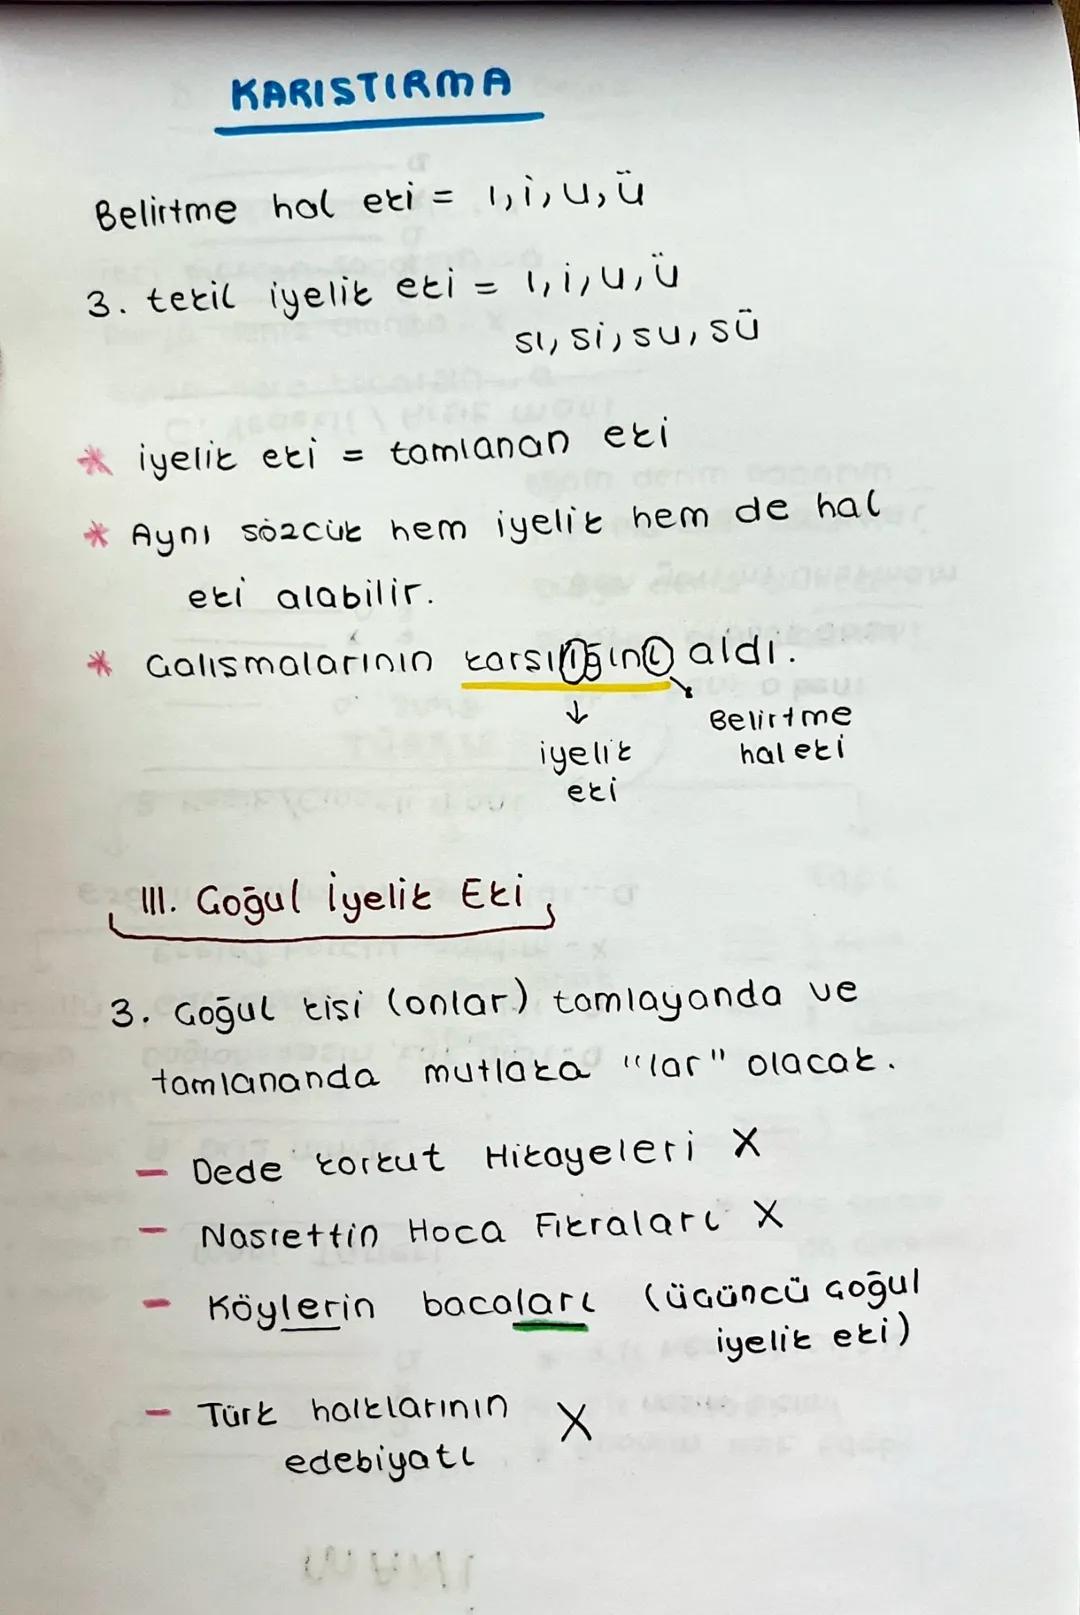 KARISTIRMA
Belirtme hal eki = ı, i, u, ü
3. tekil iyelik eki = ı, i, u, ü
sı, si, su, sü
* iyelik eki = tamlanan eki
* Aynı sözcük hem iyelik hem de hal
eki alabilir.
* Çalışmalarının karşılığını aldı.
↓
iyelik
eki
Belirtme
hal eki
III. Çoğul İyelik Eki
3. Çoğul kişi (onlar) tamlayanda ve
tamlananda mutlaka "lar" olacak.
- Dede Korkut Hikayeleri X
- Nasrettin Hoca Fıkraları X
- Köylerin bacaları (üçüncü çoğul
iyelik eki)
- Türk halklarının X
edebiyatı